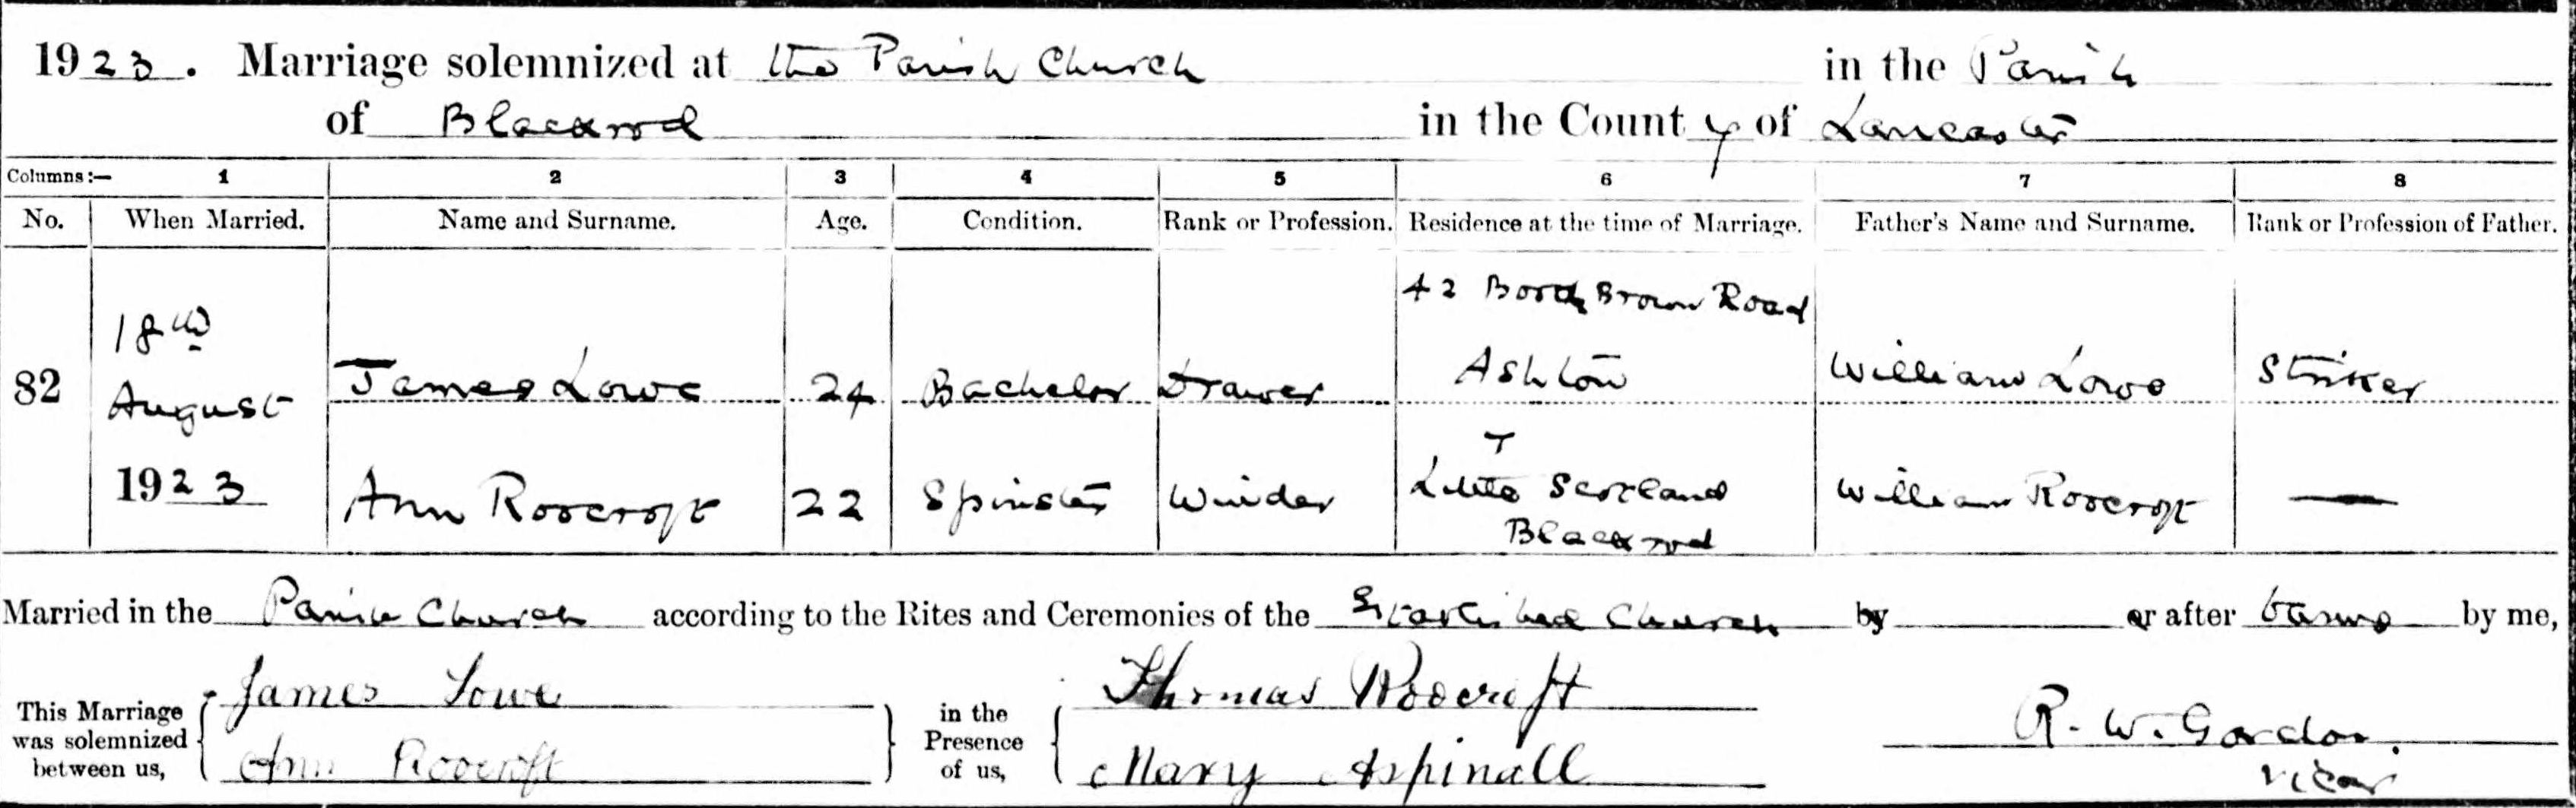 1923. Marriage solemnized at the Parish Church in the Parish
of Blackrod in the County of Lancaster
Columns:— 1 2 3 4 5 6 7 8
No. When Married. Name and Surname. Age. Condition. Rank or Profession. Residence at the time of Marriage. Father's Name and Surname. Rank or Profession of Father.
82 18th August 1923
James Lowe 24 Bachelor Drawer 42 Brown Road Ashton William Lowe Striker
Ann Roocroft 22 Spinster Winder Little Scotland Blackrod William Roocroft —
Married in the Parish Church according to the Rites and Ceremonies of the Established Church by or after banns by me,
This Marriage was solemnized between us, James Lowe Ann Roocroft in the Presence of us, Thomas Roocroft Mary Aspinall R. W. Gordon. Vicar